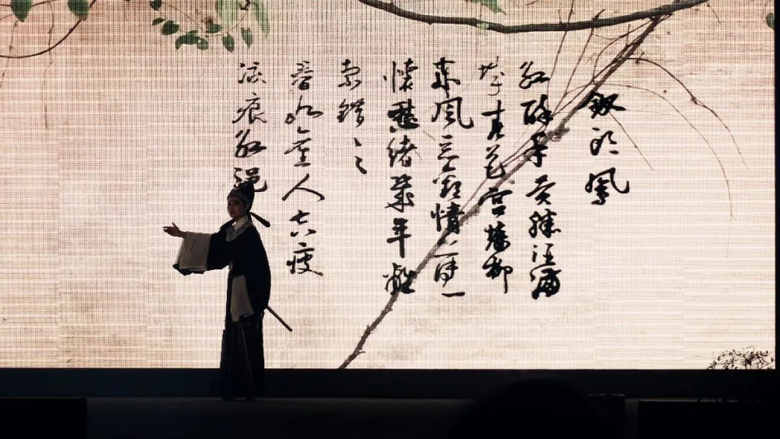 釵頭鳳
紅酥手黃縢酒滿
城春色宮牆柳
東風惡歡情薄一
懷愁緒幾年離
索錯々々
春如舊人空瘦
淚痕紅浥